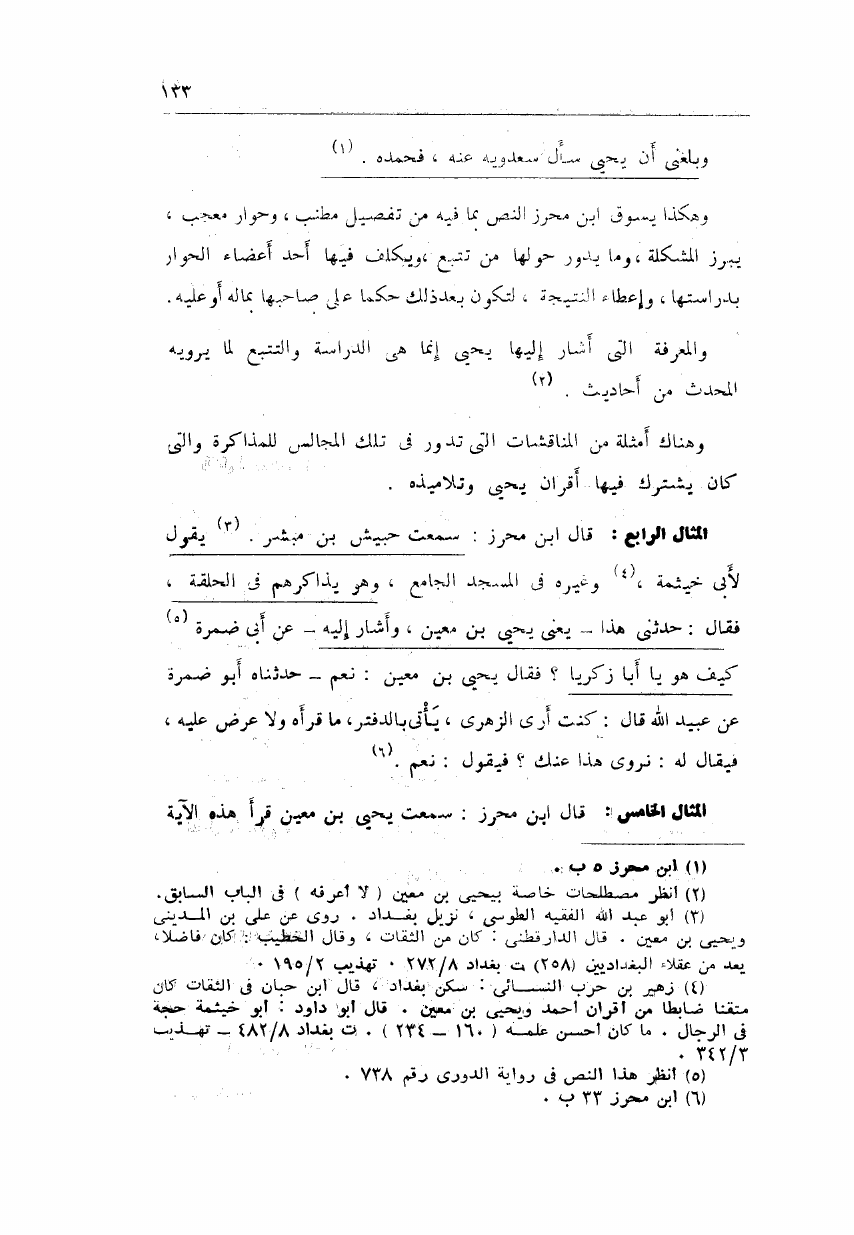 ١٣٣
وبلغنى أن يحيى سأل سعدويه عنه ، فحمده . (١)
وهكذا يسوق ابن محرز النص بما فيه من تفصيل مطنب ، وحوار معجب ،
يبرز المشكلة ، وما يدور حولها من تتبع ،ويكلف فيها أحد أعضاء الحوار
بدراستها ، وإعطاء النتيجة ، لتكون بعدذلك حكما على صاحبها بماله أوعليه .
والمعرفة التى أشار إليها يحيى إنما هى الدراسة والتتبع لما يرويه
المحدث من أحاديث . (٢)
وهناك أمثلة من المناقشات التى تدور فى تلك المجالس للمذاكرة والتى
كان يشترك فيها أقران يحيى وتلاميذه .
المثال الرابع : قال ابن محرز : سمعت حبيش بن مبشر . (٣) يقول
لأبى خيثمة ،(٤) وغيره فى المسجد الجامع ، وهو يذاكرهم فى الحلقة ،
فقال : حدثنى هذا – يعنى يحيى بن معين ، وأشار إليه – عن أبى ضمرة (٥)
كيف هو يا أبا زكريا ؟ فقال يحيى بن معين : نعم – حدثناه أبو ضمرة
عن عبيد الله قال : كنت أرى الزهرى ، يأتى بالدفتر، ما قرأه ولا عرض عليه ،
فيقال له : نروى هذا عنك ؟ فيقول : نعم . (٦)
المثال الخامس : قال ابن محرز : سمعت يحيى بن معين قرأ هذه الآية
(١) ابن محرز ٥ ب .
(٢) انظر مصطلحات خاصة بيحيى بن معين ( لا أعرفه ) فى الباب السابق .
(٣) ابو عبد الله الفقيه الطوسى ، نزيل بغداد . روى عن على بن المدينى
ويحيى بن معين . قال الدارقطنى : كان من الثقات ، وقال الخطيب : كان فاضلا ،
يعد من عقلاء البغداديين (٢٥٨) ت بغداد ٢٧٢/٨ . تهذيب ١٩٥/٢ .
(٤) زهير بن حرب النسائى : سكن بغداد ، قال ابن حبان فى الثقات كان
متقنا ضابطا من أقران أحمد ويحيى بن معين . قال أبو داود : أبو خيثمة حجة
فى الرجال . ما كان أحسن علمه ( ١٦٠ – ٢٣٤ ) . ت بغداد ٤٨٢/٨ – تهذيب
٣٤٢/٣ .
(٥) انظر هذا النص فى رواية الدورى رقم ٧٣٨ .
(٦) ابن محرز ٣٣ ب .